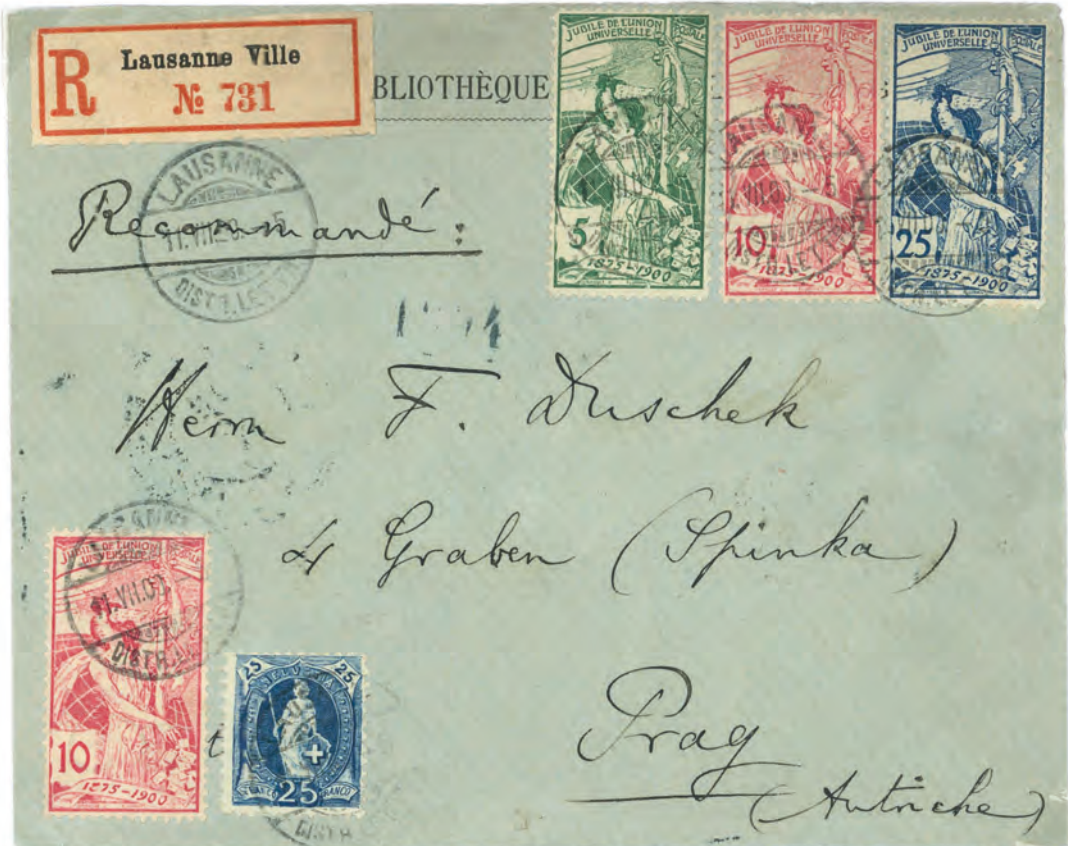 R Lausanne Ville
№ 731
BLIOTHÈQUE
JUBILÉ DE L'UNION POSTALE
UNIVERSELLE
5
1875-1900
JUBILÉ DE L'UNION POSTALE
UNIVERSELLE
10
1875-1900
JUBILÉ DE L'UNION POSTALE
UNIVERSELLE
25
1875-1900
LAUSANNE
11.VII.00. 5
DIST.LET
Recommandé:
Herrn F. Duschek
4 Graben (Spinka)
Prag
(Autriche)
LAUSANNE
11.VII.00
DISTR.
JUBILÉ DE L'UNION POSTALE
UNIVERSELLE
10
1875-1900
25 25
HELVETIA
FRANCO 25 FRANCO
DISTR